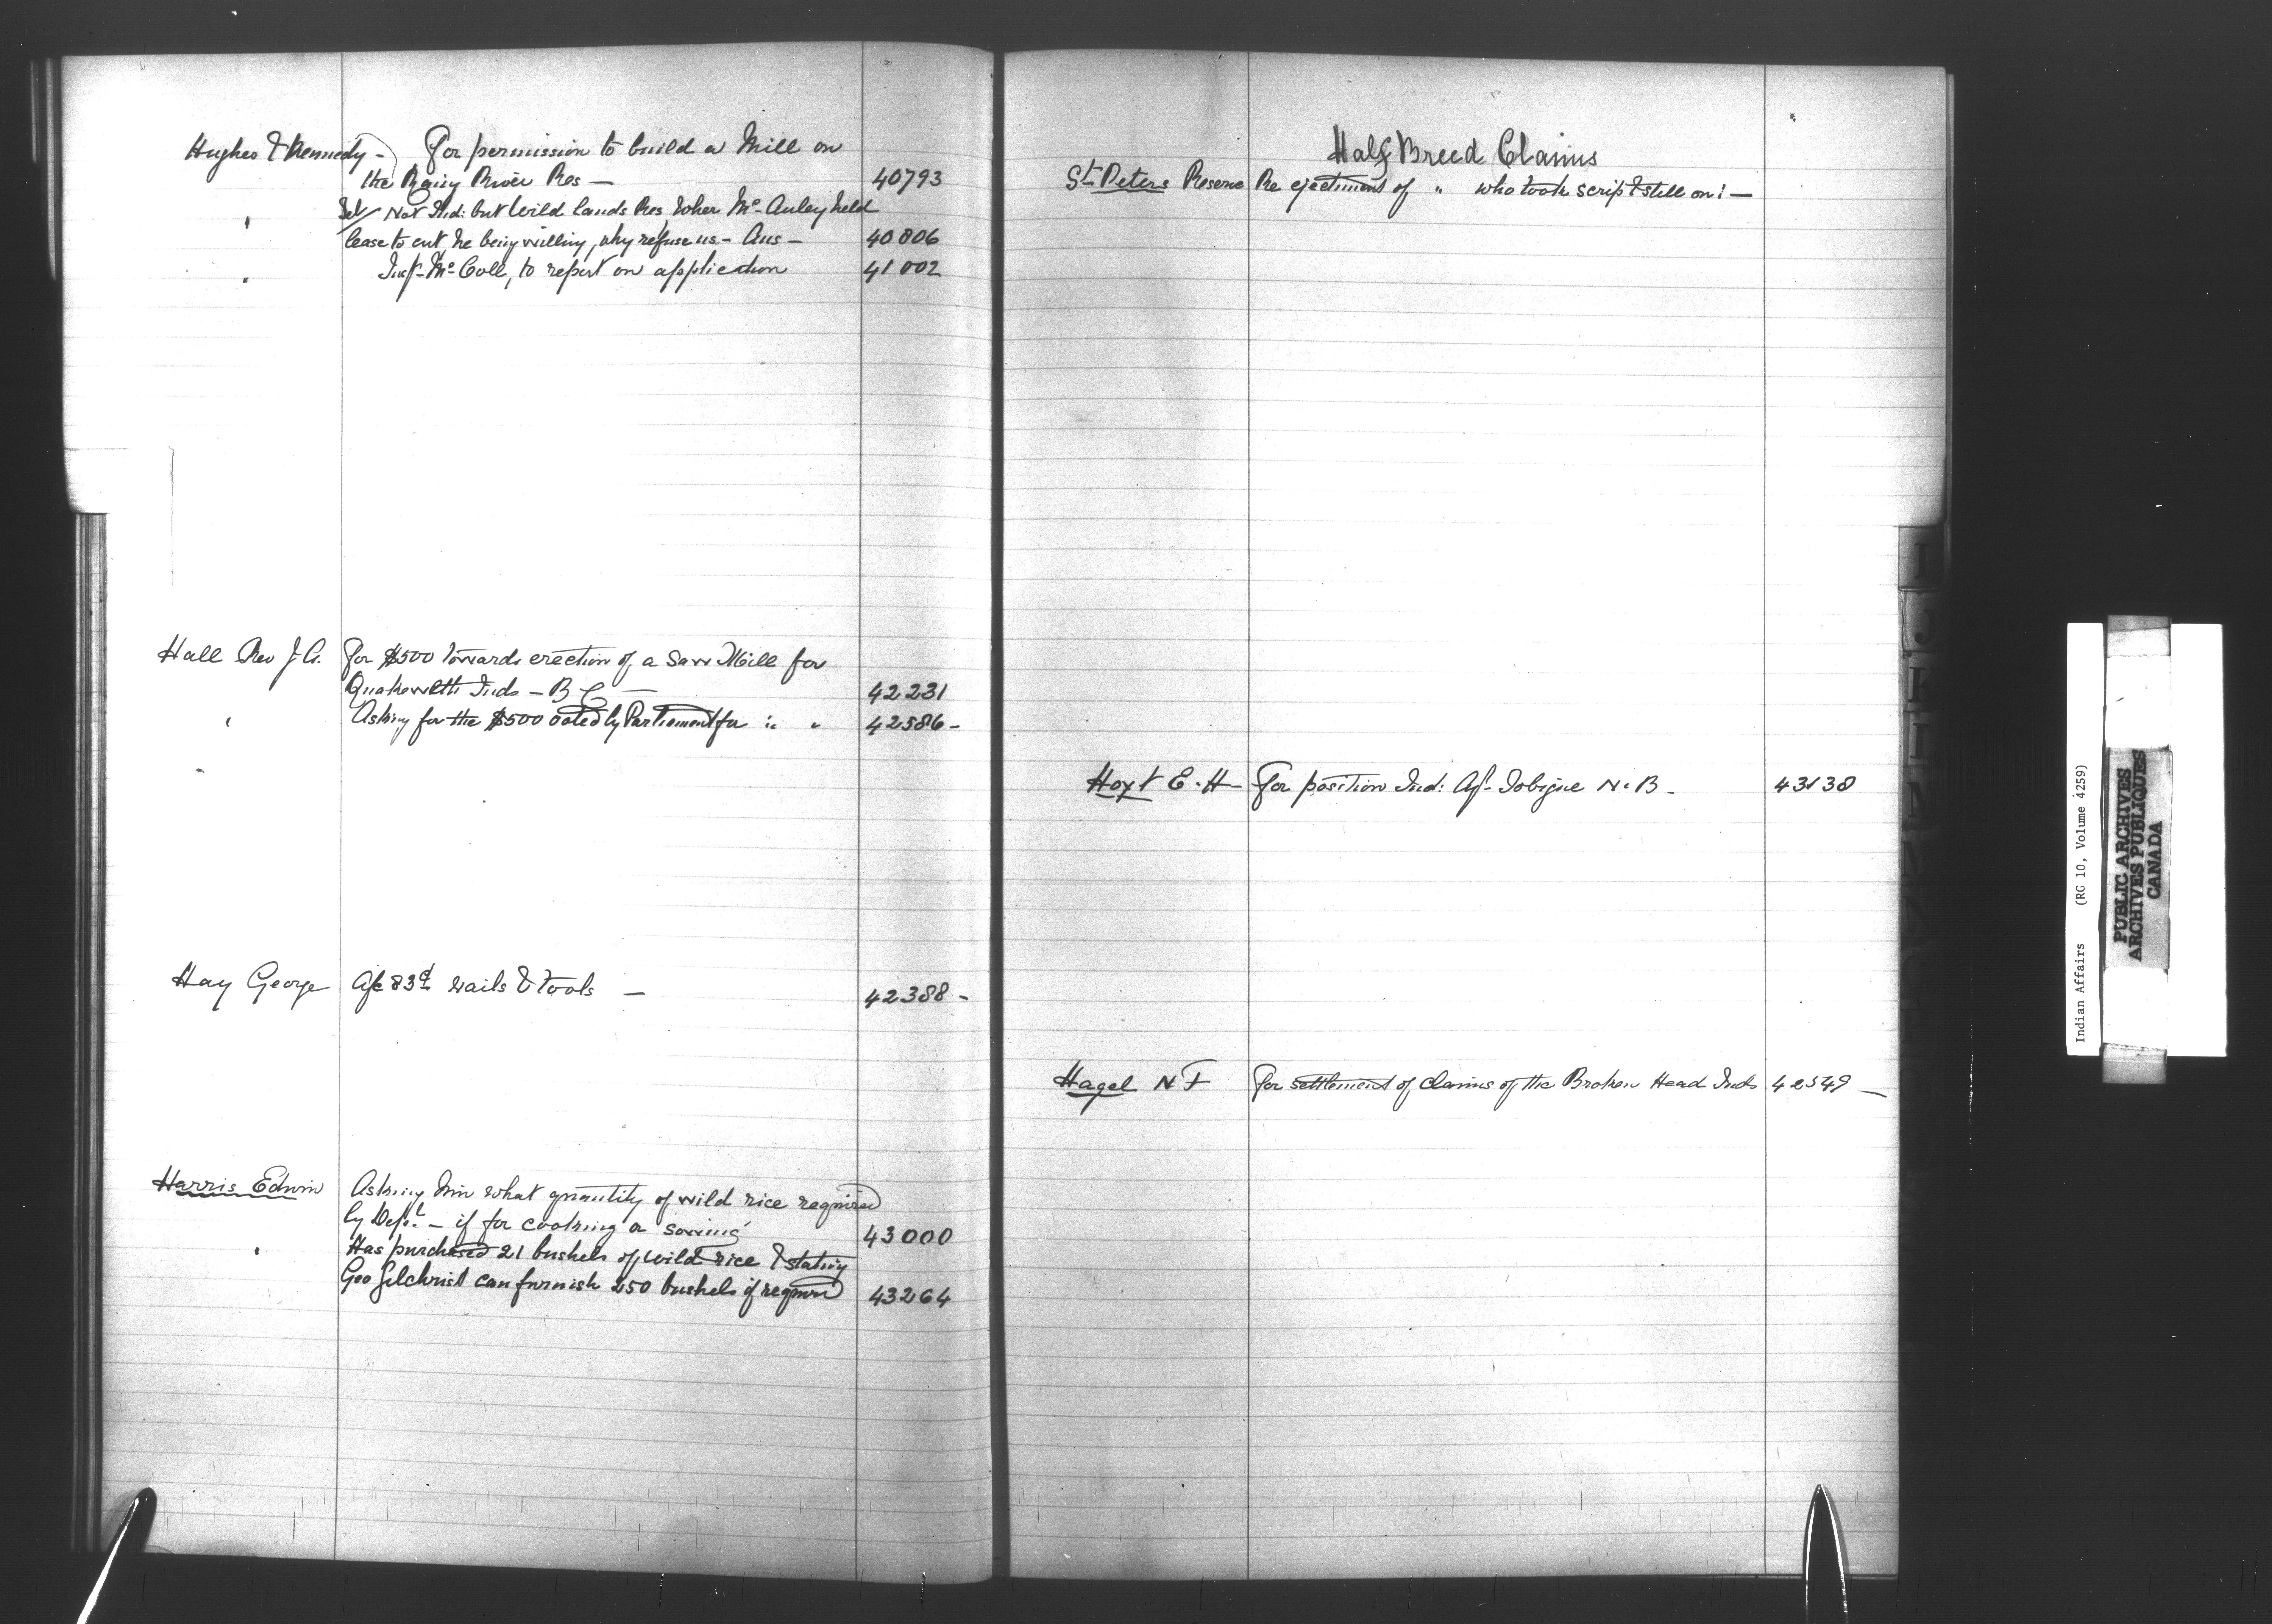 Hughes & Kennedy - For permission to build a Mill on
the Rainy River Res — 40793
" Tel/ Not Ind: but Wild lands Res, when Mc-Auley held
lease to cut, he being willing, why refuse us. - Ans - 40806
" Insp- Mc-Coll, to report on application 41002
Hall Rev J A. For $500 towards erection of a Saw Mill for
Inds - B C — 42231
" Asking for the $500 voted by Parliament for " " 42586-
Hay George A/c 83 nails & tools — 42388 -
Harris Edwin Asking him what quantity of wild rice required
by Dept. - if for cooking or sowing 43000
" Has purchased 21 bushels of wild rice & stating
Geo Gilchrist can furnish 250 bushels if required 43264
Half Breed Claims
St. Peters Reserve Re ejectment of " who took scrip & still on! —
Hoyt E. H - For position Ind: Agt- Tobique N. B - 43138
Hagel N F For settlement of claims of the Broken Head Inds 42549 —
I
J
K
Indian Affairs (RG 10, Volume 4259)
PUBLIC ARCHIVES
ARCHIVES PUBLIQUES
CANADA